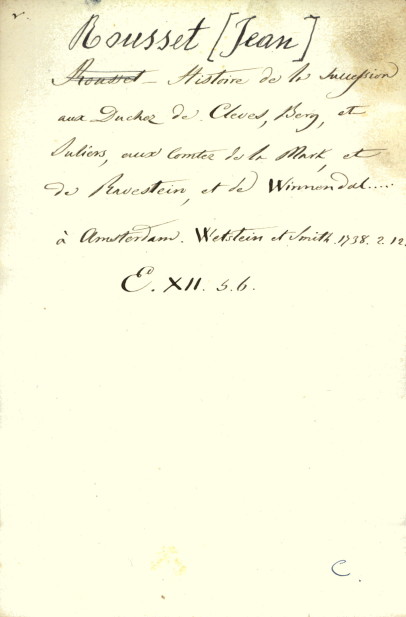 Rousset [Jean]
Rousset – Histoire de la Succession
aux Duchez de Cleves, Berg, et
Juliers, aux Comtez de la Mark, et
de Ravestein, et de Winnendal....
à Amsterdam. Wetstein et Smith. 1738. 2. 12.
E. XII. 5. 6.
C.